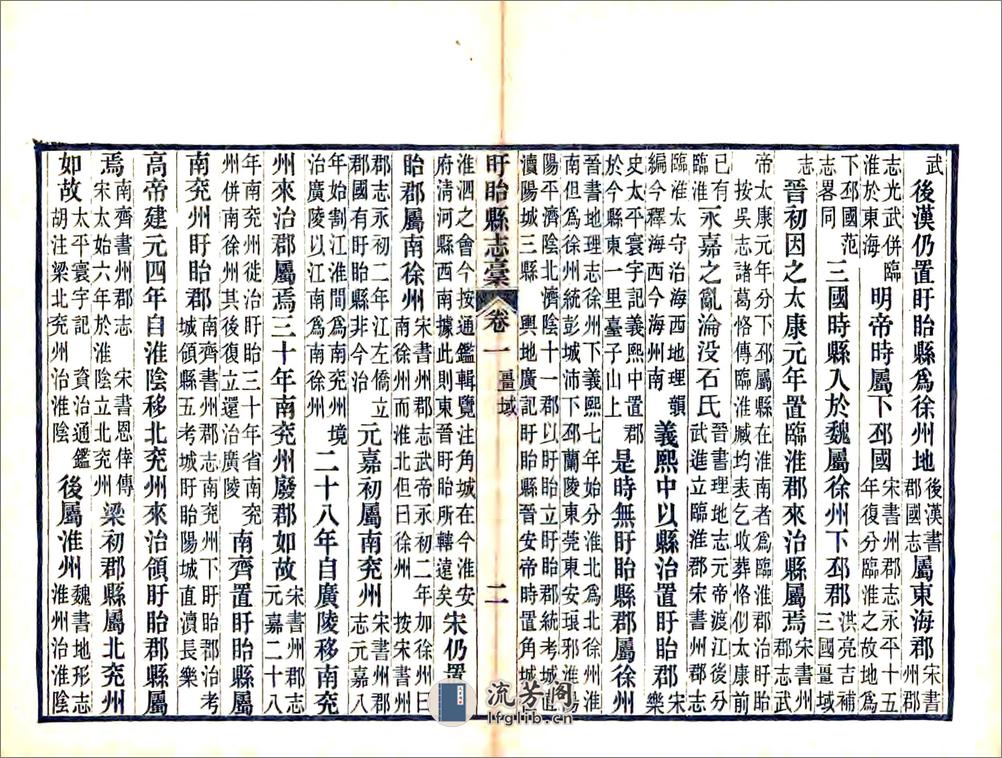 武後漢仍置盱眙縣為徐州地後漢書郡國志屬東海郡宋書州郡
志光武併臨淮於東海明帝時屬下邳國宋書州郡志永平十五年復分臨淮之故地為
下邳國范志畧同三國時縣入於魏屬徐州下邳郡洪亮吉補三國疆域
志晉初因之太康元年置臨淮郡來治縣屬焉宋書州郡志武
帝太康元年分下邳屬縣在淮南者為臨淮郡治盱眙按吳志諸葛恪傳臨淮臧均表乞收葬恪似太康前
已有臨淮永嘉之亂淪没石氏晉書地理志元帝渡江後分武進立臨淮郡宋書州郡志
臨淮太守治海西地理韻編今釋海西今海州南義熙中以縣治置盱眙郡宋樂
史太平寰宇記義熙中置郡於今縣東一里臺子山上是時無盱眙縣郡屬徐州
晉書地理志徐州下義熙七年始分淮北為北徐州淮南但為徐州統彭城沛下邳蘭陵東莞東安琅邪淮陽
陽平濟陰北濟陰十一郡以盱眙立盱眙郡統考城直瀆陽城三縣輿地廣記盱眙縣晉安帝時置角城
盱眙縣志稾 卷一 疆域 二
淮泗之會今按通鑑輯覽注角城在今淮安府清河縣西南據此則東晉盱眙所轄遠矣宋仍置
眙郡屬南徐州宋書州郡志武帝永初二年加徐州曰南徐州而淮北但曰徐州按宋書州
郡志永初二年江左僑立郡國有盱眙縣非今治元嘉初屬南兗州宋書州郡志元嘉八
年始割江淮間為南兗州境治廣陵以江南為南徐州二十八年自廣陵移南兗
州來治郡屬焉三十年南兗州廢郡如故宋書州郡志元嘉二十八
年南兗州徙治盱眙三十年省南兗州併南徐州其後復立還治廣陵南齊置盱眙縣屬
南兗州盱眙郡南齊書州郡志南兗州下盱眙郡治考城領縣五考城盱眙陽城直瀆長樂
高帝建元四年自淮陰移北兗州來治領盱眙郡縣屬
焉南齊書州郡志宋太始六年於淮陰立北兗州宋書恩倖傳梁初郡縣屬北兗州
如故太平寰宇記胡注梁北兗州治淮陰資治通鑑後屬淮州魏書地形志淮州治淮陰
流芳阁
lfglib.com